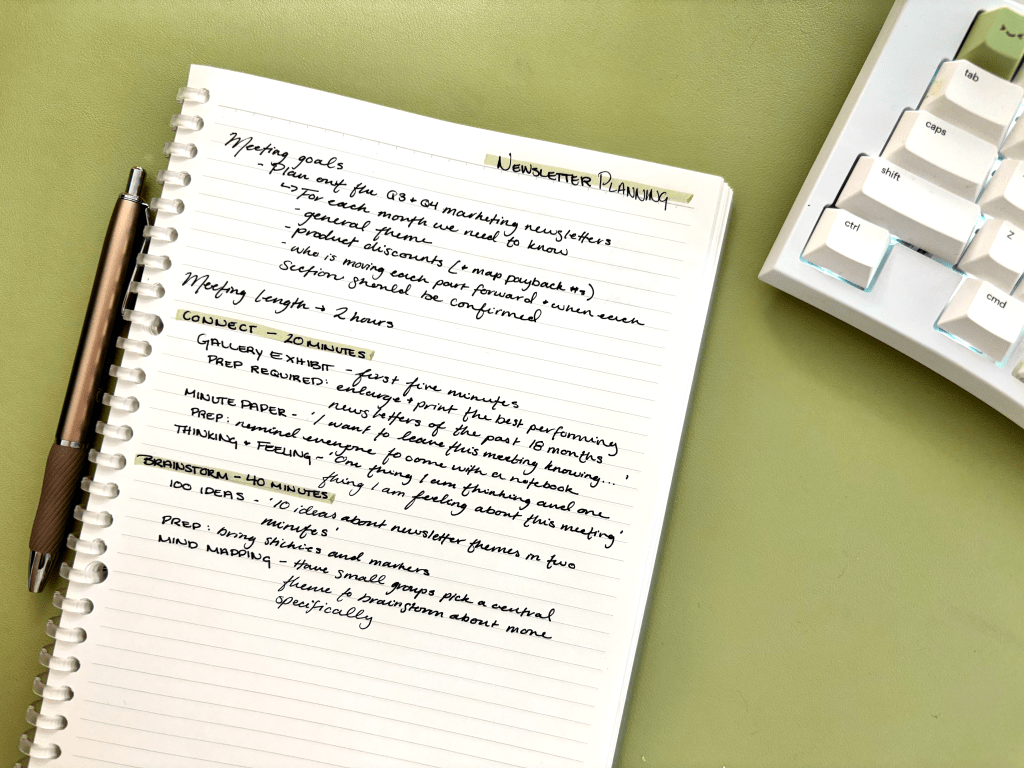 Newsletter Planning
Meeting goals
- Plan out the Q3 + Q4 marketing newsletters
↳ For each month we need to know
- general theme
- product discounts (+ map payback #s)
- who is moving each part forward + when each
section should be confirmed
Meeting Length → 2 hours
CONNECT - 20 MINUTES
GALLERY EXHIBIT - first five minutes
PREP REQUIRED: enlarge + print the best performing
newsletters of the past 18 months
MINUTE PAPER - 'I want to leave this meeting knowing...'
PREP: remind everyone to come with a notebook
THINKING + FEELING - 'One thing I am thinking and one
thing I am feeling about this meeting'
BRAINSTORM - 40 MINUTES
100 IDEAS - '10 ideas about newsletter themes in two
minutes'
PREP: bring stickies and markers
MIND MAPPING - Have small groups pick a central
theme to brainstorm about more
specifically
tab
caps
shift
Z
ctrl
cmd